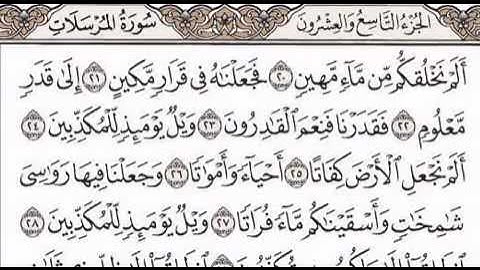 سُورَةُ الْمُرْسَلَاتِ الجُزْءُ التَّاسِعُ وَالْعِشْرُونَ
أَلَمْ نَخْلُقكُّم مِّن مَّآءٍ مَّهِينٍ ٢٠ فَجَعَلْنَاهُ فِى قَرَارٍ مَّكِينٍ ٢١ إِلَىٰ قَدَرٍ
مَّعْلُومٍ ٢٢ فَقَدَرْنَا فَنِعْمَ الْقَادِرُونَ ٢٣ وَيْلٌ يَوْمَئِذٍ لِّلْمُكَذِّبِينَ ٢٤
أَلَمْ نَجْعَلِ الْأَرْضَ كِفَاتًا ٢٥ أَحْيَآءً وَأَمْوَاتًا ٢٦ وَجَعَلْنَا فِيهَا رَوَاسِىَ
شَامِخَاتٍ وَأَسْقَيْنَاكُم مَّآءً فُرَاتًا ٢٧ وَيْلٌ يَوْمَئِذٍ لِّلْمُكَذِّبِينَ ٢٨